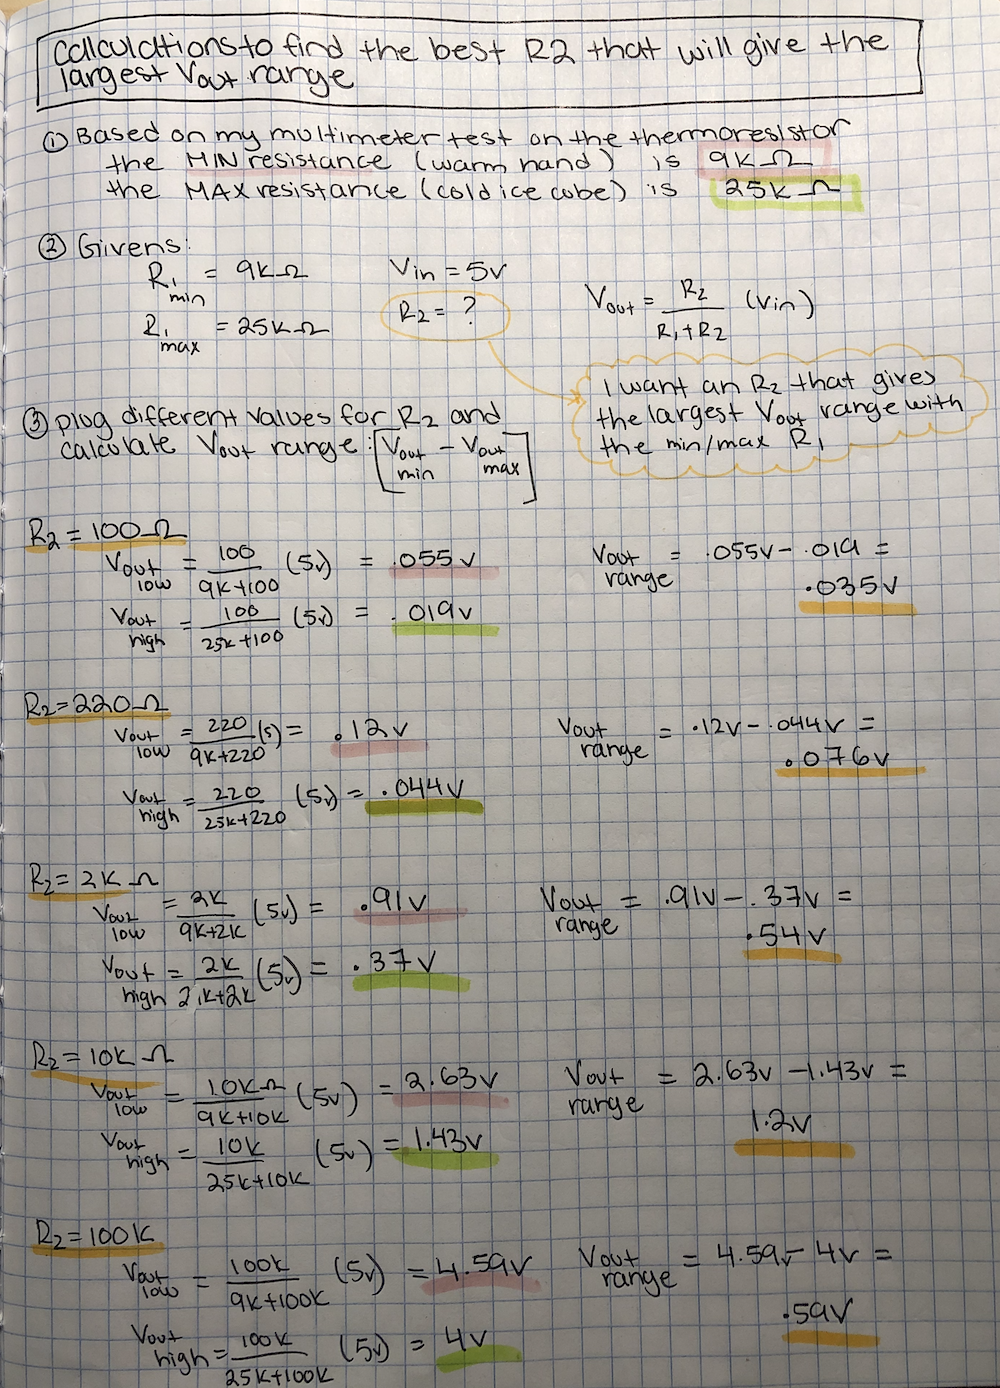 Calculations to find the best R2 that will give the
largest Vout range
① Based on my multimeter test on the thermoresistor
the MIN resistance (warm hand) is 9KΩ
the MAX resistance (cold ice cube) is 25KΩ
② Givens:
R1 min = 9KΩ
Vin = 5v
R1 max = 25KΩ
R2 = ?
Vout = R2 / R1+R2 (Vin)
I want an R2 that gives
the largest Vout range with
the min/max R1
③ plug different values for R2 and
calculate Vout range: [Vout min - Vout max]
R2 = 100Ω
Vout low = 100 / 9K+100 (5v) = .055v
Vout high = 100 / 25K+100 (5v) = .019v
Vout range = .055v - .019 =
.035v
R2 = 220Ω
Vout low = 220 / 9K+220 (5) = .12v
Vout high = 220 / 25K+220 (5v) = .044v
Vout range = .12v - .044v =
.076v
R2 = 2KΩ
Vout low = 2K / 9K+2K (5v) = .91v
Vout high = 2K / 2 K+2K (5v) = .37v
Vout range = .91v - .37v =
.54v
R2 = 10KΩ
Vout low = 10KΩ / 9K+10K (5v) = 2.63v
Vout high = 10K / 25K+10K (5v) = 1.43v
Vout range = 2.63v - 1.43v =
1.2v
R2 = 100K
Vout low = 100K / 9K+100K (5v) = 4.59v
Vout high = 100K / 25K+100K (5v) = 4v
Vout range = 4.59v - 4v =
.59v